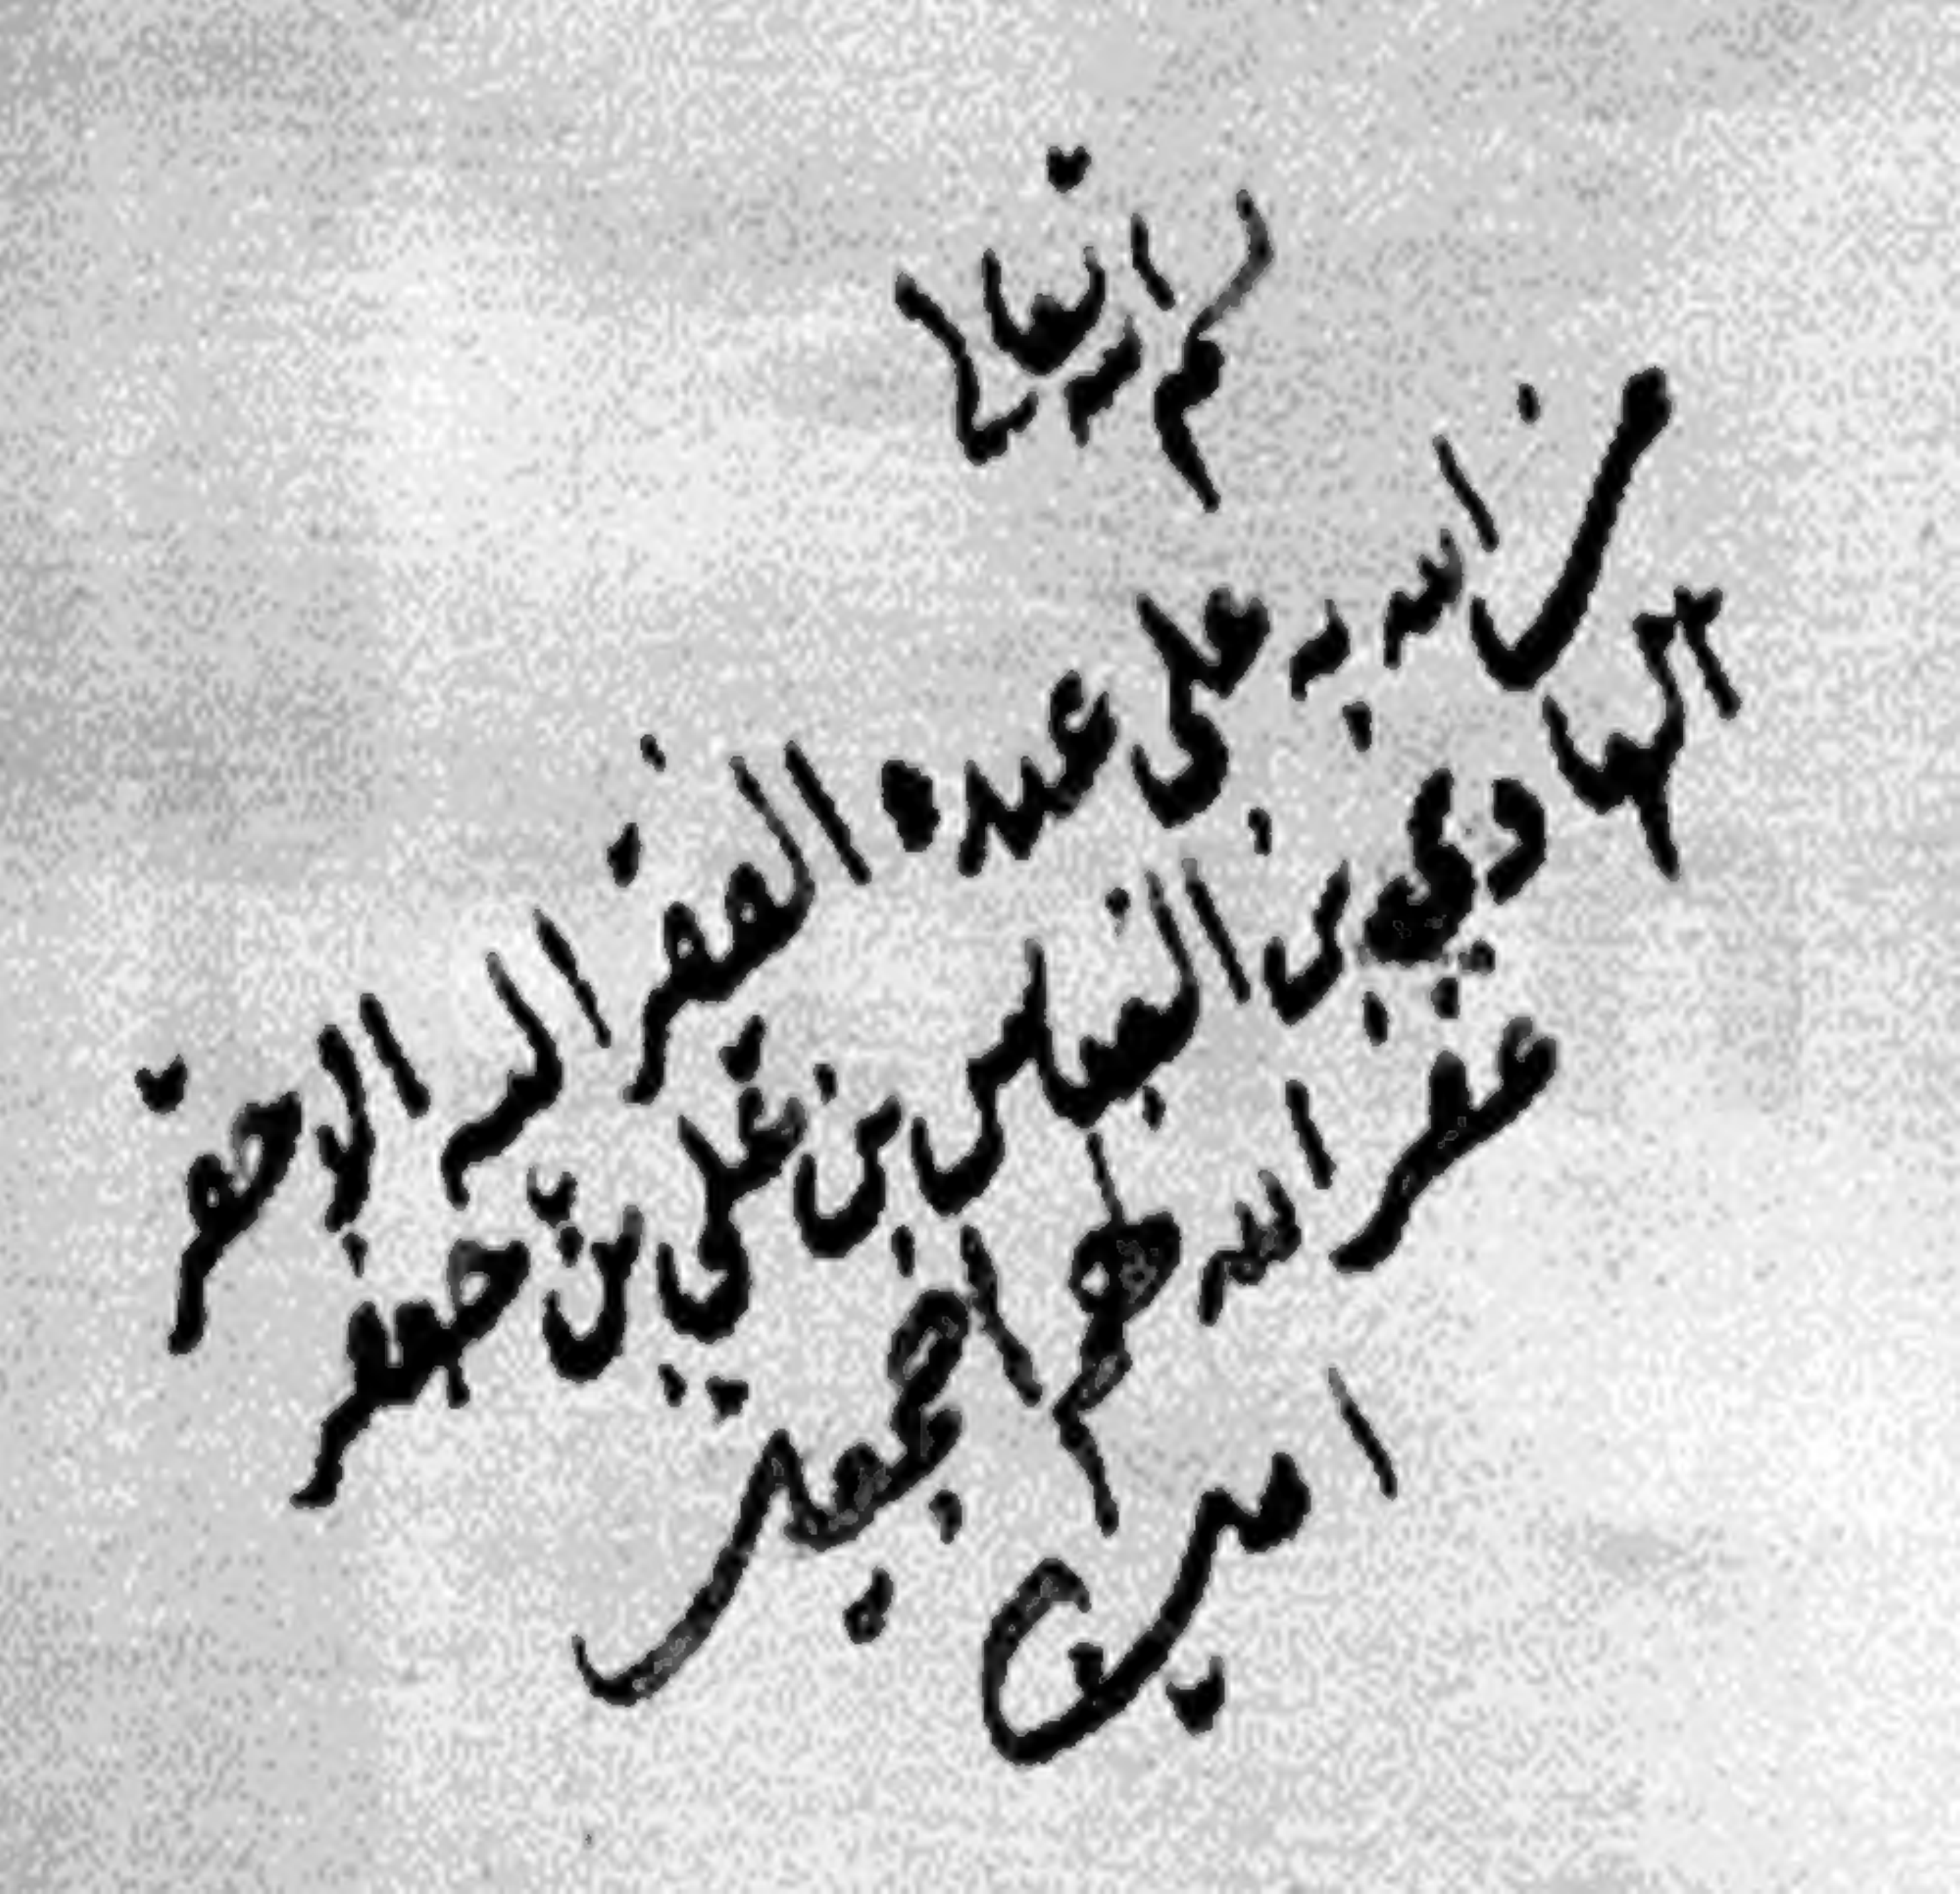 تعالى
من الله به على عبده الفقير اليه الاحقر
الهادي بن العباس بن علي بن جعفر
غفر الله لهم اجمعين
امين